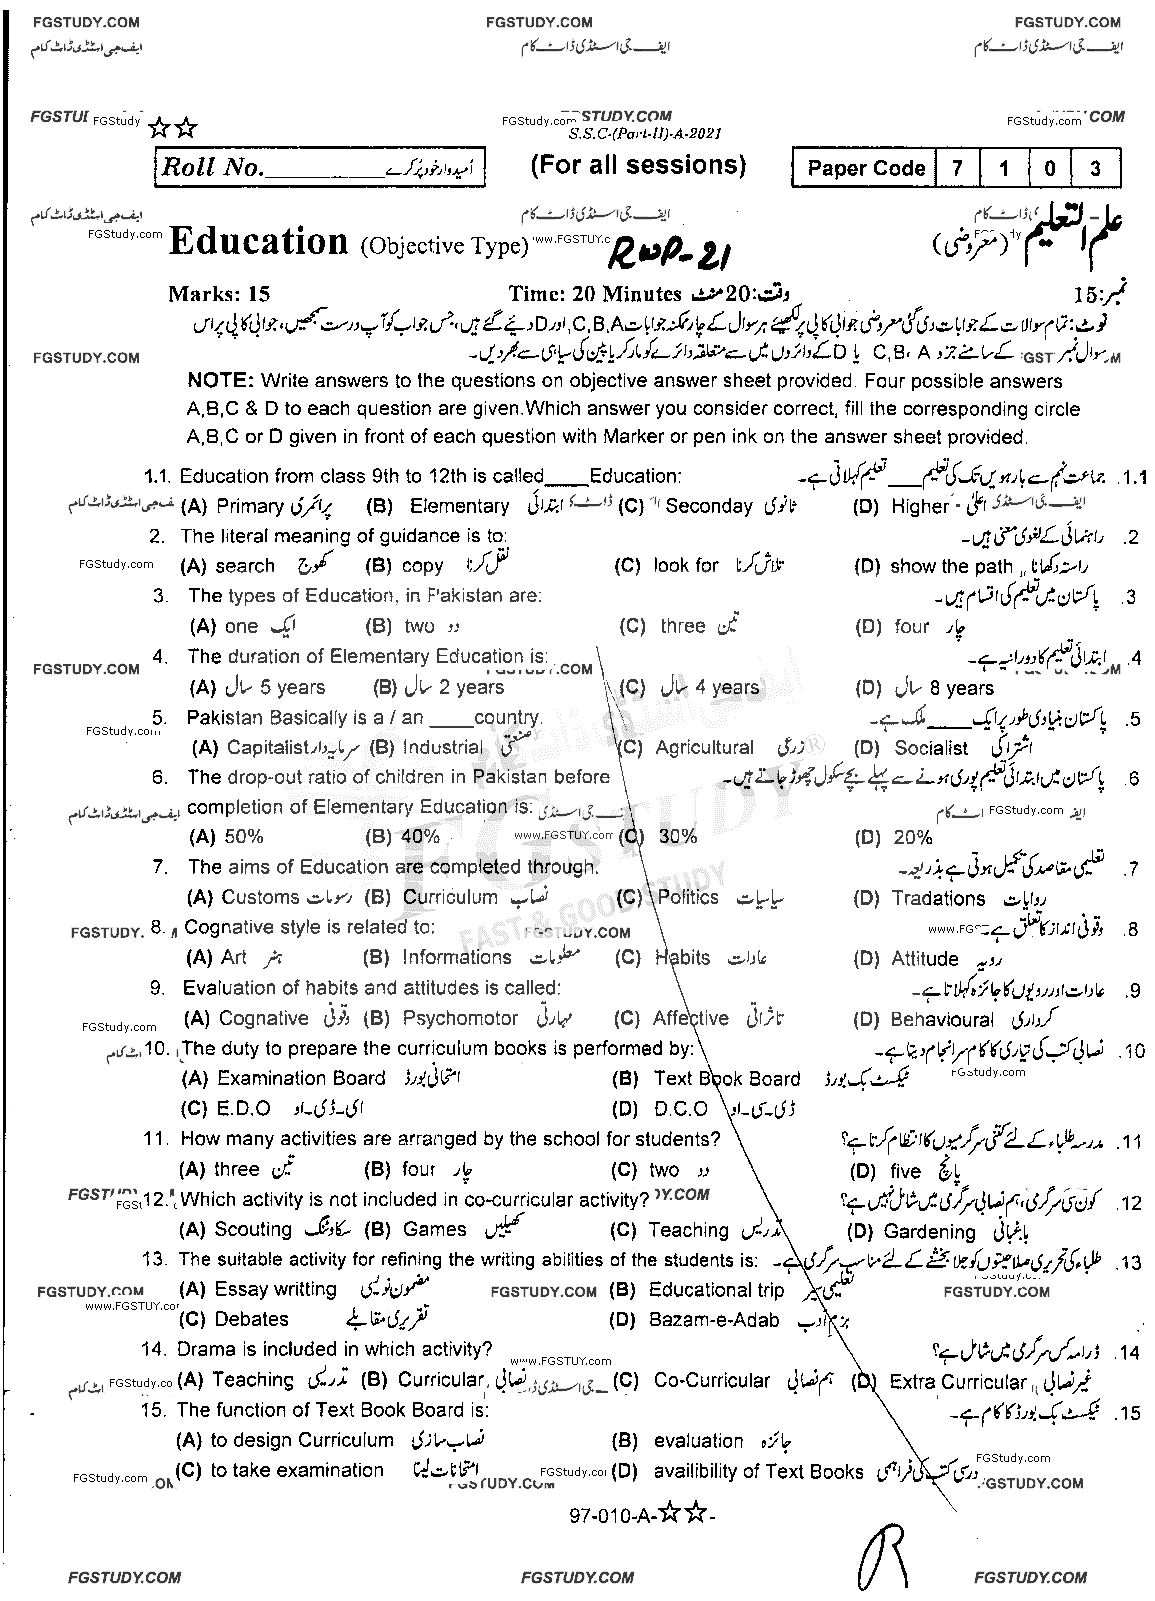 FGSTUDY.COM FGSTUDY.COM FGSTUDY.COM
ایف جی اسٹڈی ڈاٹ کام ایف جی اسٹڈی ڈاٹ کام ایف جی اسٹڈی ڈاٹ کام
FGSTUI FGStudy ☆☆ FGStudy.com STUDY.COM FGStudy.com COM
S.S.C-(Part-II)-A-2021
Roll No. امیدوار خود پُر کرے (For all sessions) Paper Code 7 1 0 3
ایف جی اسٹڈی ڈاٹ کام ایف جی اسٹڈی ڈاٹ کام ڈاٹ کام
FGStudy.com Education (Objective Type) www.FGSTUY.c RWP-21 علم التعلیم (معروضی)
Marks: 15 Time: 20 Minutes وقت:20 منٹ نمبر:15
نوٹ: تمام سوالات کے جوابات دی گئی معروضی جوابی کاپی پر لکھیئے ہر سوال کے چار ممکنہ جوابات A,B,C اور D دئیے گئے ہیں، جس جواب کو آپ درست سمجھیں، جوابی کاپی پر اس
FGSTUDY.COM سوال نمبر کے سامنے جزو A ،B، C یا D کے دائروں میں سے متعلقہ دائرے کو مارکر یا پین کی سیاہی سے بھر دیں۔
NOTE: Write answers to the questions on objective answer sheet provided. Four possible answers
A,B,C & D to each question are given.Which answer you consider correct, fill the corresponding circle
A,B,C or D given in front of each question with Marker or pen ink on the answer sheet provided.
1.1. Education from class 9th to 12th is called____Education: جماعت نہم سے بارہویں تک کی تعلیم ____ تعلیم کہلاتی ہے۔ .1.1
ایف جی اسٹڈی ڈاٹ کام (A) Primary پرائمری (B) Elementary ابتدائی (C) Seconday ثانوی (D) Higher اعلیٰ
2. The literal meaning of guidance is to: راہنمائی کے لغوی معنی ہیں۔ .2
FGStudy.com (A) search کھوج (B) copy نقل کرنا (C) look for تلاش کرنا (D) show the path راستہ دکھانا
3. The types of Education, in Pakistan are: پاکستان میں تعلیم کی اقسام ہیں۔ .3
(A) one ایک (B) two دو (C) three تین (D) four چار
4. The duration of Elementary Education is: ابتدائی تعلیم کا دورانیہ ہے۔ .4
FGSTUDY.COM FGSTUDY.COM
(A) سال 5 years (B) سال 2 years (C) سال 4 years (D) سال 8 years
5. Pakistan Basically is a / an ____country. پاکستان بنیادی طور پر ایک ____ ملک ہے۔ .5
FGStudy.com (A) Capitalist سرمایہ دار (B) Industrial صنعتی (C) Agricultural زرعی (D) Socialist اشتراکی
6. The drop-out ratio of children in Pakistan before پاکستان میں ابتدائی تعلیم پوری ہونے سے پہلے بچے سکول چھوڑ جاتے ہیں۔ .6
ایف جی اسٹڈی ڈاٹ کام completion of Elementary Education is: جی اسٹڈی FGStudy.com ایف
(A) 50% (B) 40% www.FGSTUY.com (C) 30% (D) 20%
FGSTUDY
7. The aims of Education are completed through. تعلیمی مقاصد کی تکمیل ہوتی ہے بذریعہ۔ .7
FAST & GOOD STUDY
(A) Customs رسومات (B) Curriculum نصاب (C) Politics سیاسیات (D) Tradations روایات
FGSTUDY. 8. Cognative style is related to: FGSTUDY.COM www.FGS وقوفی انداز کا تعلق ہے .8
(A) Art ہنر (B) Informations معلومات (C) Habits عادات (D) Attitude رویہ
9. Evaluation of habits and attitudes is called: عادات اور رویوں کا جائزہ کہلاتا ہے۔ .9
FGStudy.com (A) Cognative وقوفی (B) Psychomotor مہارتی (C) Affective تاثراتی (D) Behavioural کرداری
10. The duty to prepare the curriculum books is performed by: نصابی کتب کی تیاری کا کام سرانجام دیتا ہے۔ .10
(A) Examination Board امتحانی بورڈ (B) Text Book Board ٹیکسٹ بک بورڈ FGStudy.com
(C) E.D.O ای-ڈی-او (D) D.C.O ڈی-سی-او
11. How many activities are arranged by the school for students? مدرسہ طلباء کے لئے کتنی سرگرمیوں کا انتظام کرتا ہے؟ .11
(A) three تین (B) four چار (C) two دو (D) five پانچ
12. Which activity is not included in co-curricular activity? کون سی سرگرمی، ہم نصابی سرگرمی میں شامل نہیں ہے؟ .12
(A) Scouting سکاؤٹنگ (B) Games کھیلیں (C) Teaching تدریس (D) Gardening باغبانی
13. The suitable activity for refining the writing abilities of the students is: طلباء کی تحریری صلاحیتوں کو جلا بخشنے کے لئے مناسب سرگرمی ہے۔ .13
FGSTUDY.COM (A) Essay writting مضمون نویسی FGSTUDY.COM (B) Educational trip تعلیمی سیر FGSTUDY.COM
www.FGSTUY.cor (C) Debates تقریری مقابلے (D) Bazam-e-Adab بزم ادب
14. Drama is included in which activity? ڈرامہ کس سرگرمی میں شامل ہے؟ .14
www.FGSTUY.com
FGStudy.co (A) Teaching تدریسی (B) Curricular نصابی (C) Co-Curricular ہم نصابی (D) Extra Curricular غیر نصابی
15. The function of Text Book Board is: ٹیکسٹ بک بورڈ کا کام ہے۔ .15
(A) to design Curriculum نصاب سازی (B) evaluation جائزہ
FGStudy.com (C) to take examination امتحانات لینا FGStudy.cor (D) availibility of Text Books درسی کتب کی فراہمی FGStudy.com
FGSTUDY.COM FGSTUDY.COM
97-010-A-☆☆-
R
FGSTUDY.COM FGSTUDY.COM FGSTUDY.COM